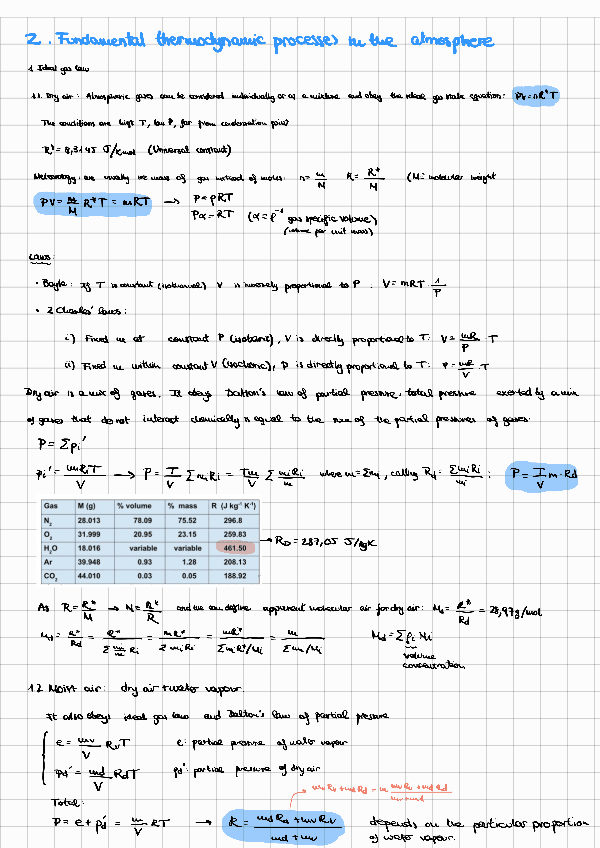 2. Fundamental thermodynamic processes in the atmosphere
1 Ideal gas law
1.1. Dry air: Atmospheric gases can be considered individually or as a mixture and obey the ideal gas state equation: PV=nR*T
The conditions are high T, low P, far from condensation point
R* = 8,3145 J/K mol (Universal constant)
Meteorology: we usually use mass of gas instead of moles: n = m/M R = R*/M (M: molecular weight
PV = m/M R*T = mRT → P = ρRT
Pα = RT (α = ρ⁻¹ gas specific volume)
(volume per unit mass)
Laws:
• Boyle: If T is constant (isothermal) V is inversely proportional to P: V = mRT · 1/P
• 2 Charles' laws:
i) Fixed m at constant P (isobaric), V is directly proportional to T: V = mR/P · T
ii) Fixed m within constant V (isochoric), P is directly proportional to T: P = mR/V · T
Dry air is a mix of gases. It obeys Dalton's law of partial pressure: total pressure exerted by a mix
of gases that do not interact chemically is equal to the sum of the partial pressures of gases.
P = Σpi'
pi' = miRiT/V → P = T/V Σ miRi = Tm/V Σ miRi/m where m=Σmi, calling Rd = ΣmiRi/m : P = T/V m·Rd
Gas M (g) % volume % mass R (J kg⁻¹ K⁻¹)
N₂ 28.013 78.09 75.52 296.8
O₂ 31.999 20.95 23.15 259.83
H₂O 18.016 variable variable 461.50
Ar 39.948 0.93 1.28 208.13
CO₂ 44.010 0.03 0.05 188.92
→ RD = 287,05 J/kgK
As R = R*/M → M = R*/R and we can define apparent molecular air for dry air: Md = R*/Rd = 28,97 g/mol
Md = R*/Rd = R*/(Σ mi/m Ri) = mR*/(Σ miRi) = mR*/(Σ mi R*/Mi) = m/(Σ mi/Mi) Md = Σ ρi Mi
volume
concentration
1.2 Moist air: dry air + water vapour.
It also obeys ideal gas law and Dalton's law of partial pressure
e = mv/V RvT e: partial pressure of water vapour
pd' = md/V RdT pd': partial pressure of dry air
Total:
mvRv + mdRd = m (mvRv + mdRd)/(mv+md)
P = e + pd' = m/V RT → R = (mdRd + mvRv)/(md + mv) depends on the particular proportion
of water vapour.